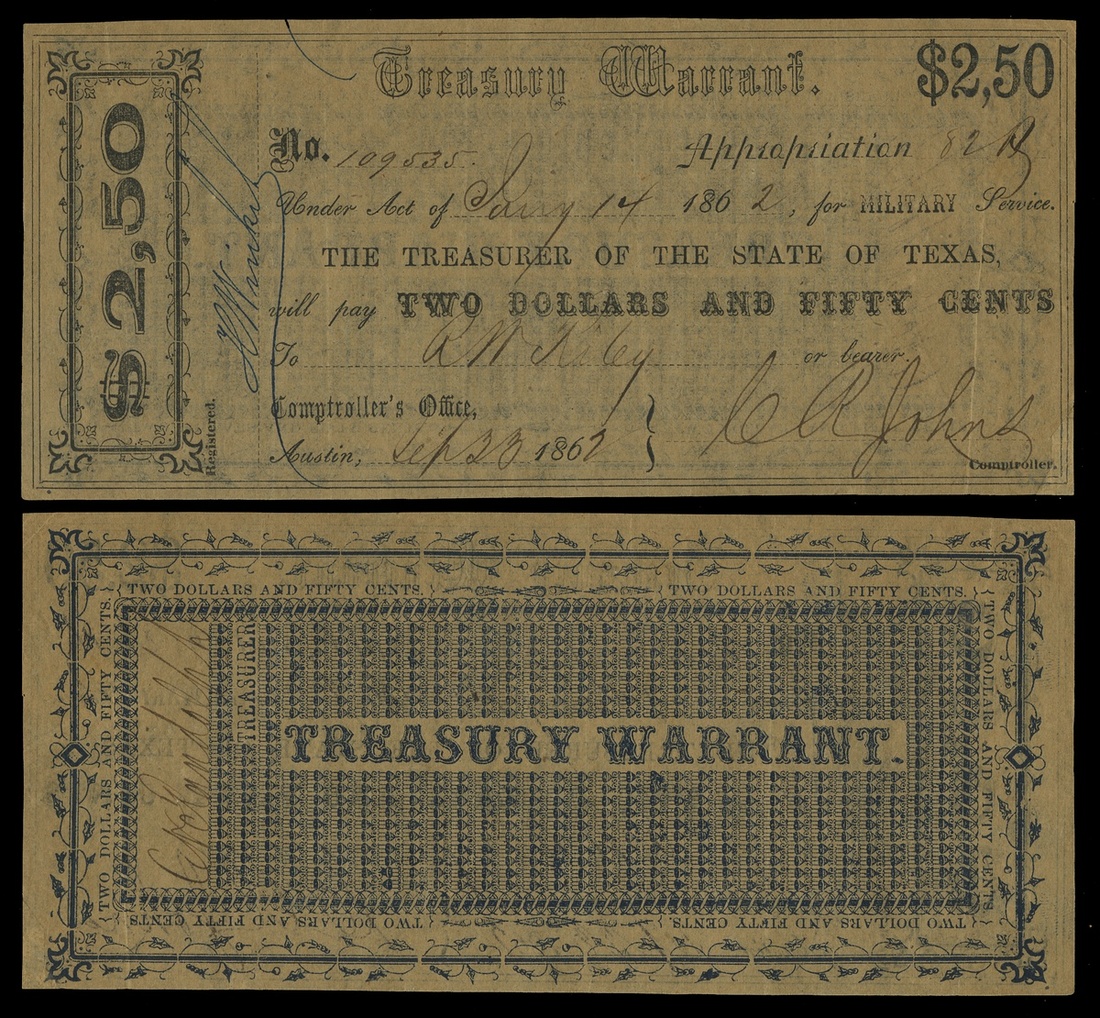 $2,50
Treasury Warrant.
$2,50
No. 109535.
Appropriation 82
Under Act of Jany 14 1862, for MILITARY Service.
THE TREASURER OF THE STATE OF TEXAS,
will pay TWO DOLLARS AND FIFTY CENTS
To R W Kiley or bearer.
Comptroller's Office,
Austin, Sep 23 1862
C R Johns
Comptroller.
Registered.
TWO DOLLARS AND FIFTY CENTS. TWO DOLLARS AND FIFTY CENTS.
TWO DOLLARS AND FIFTY CENTS.
C H Randolph
TREASURER
TREASURY WARRANT.
TWO DOLLARS AND FIFTY CENTS.
TWO DOLLARS AND FIFTY CENTS TWO DOLLARS AND FIFTY CENTS.